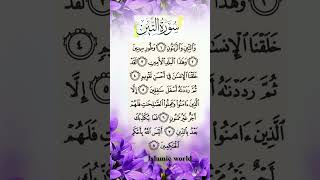 سُورَةُ التِّينِ
وَالتِّينِ وَالزَّيْتُونِ ١ وَطُورِ سِينِينَ
٢ وَهَٰذَا الْبَلَدِ الْأَمِينِ ٣ لَقَدْ
خَلَقْنَا الْإِنسَانَ فِي أَحْسَنِ تَقْوِيمٍ ٤
ثُمَّ رَدَدْنَاهُ أَسْفَلَ سَافِلِينَ ٥ إِلَّا
الَّذِينَ آمَنُوا وَعَمِلُوا الصَّالِحَاتِ فَلَهُمْ
أَجْرٌ غَيْرُ مَمْنُونٍ ٦ فَمَا يُكَذِّبُكَ
بَعْدُ بِالدِّينِ ٧ أَلَيْسَ اللَّهُ بِأَحْكَمِ
الْحَاكِمِينَ ٨
Islamic world